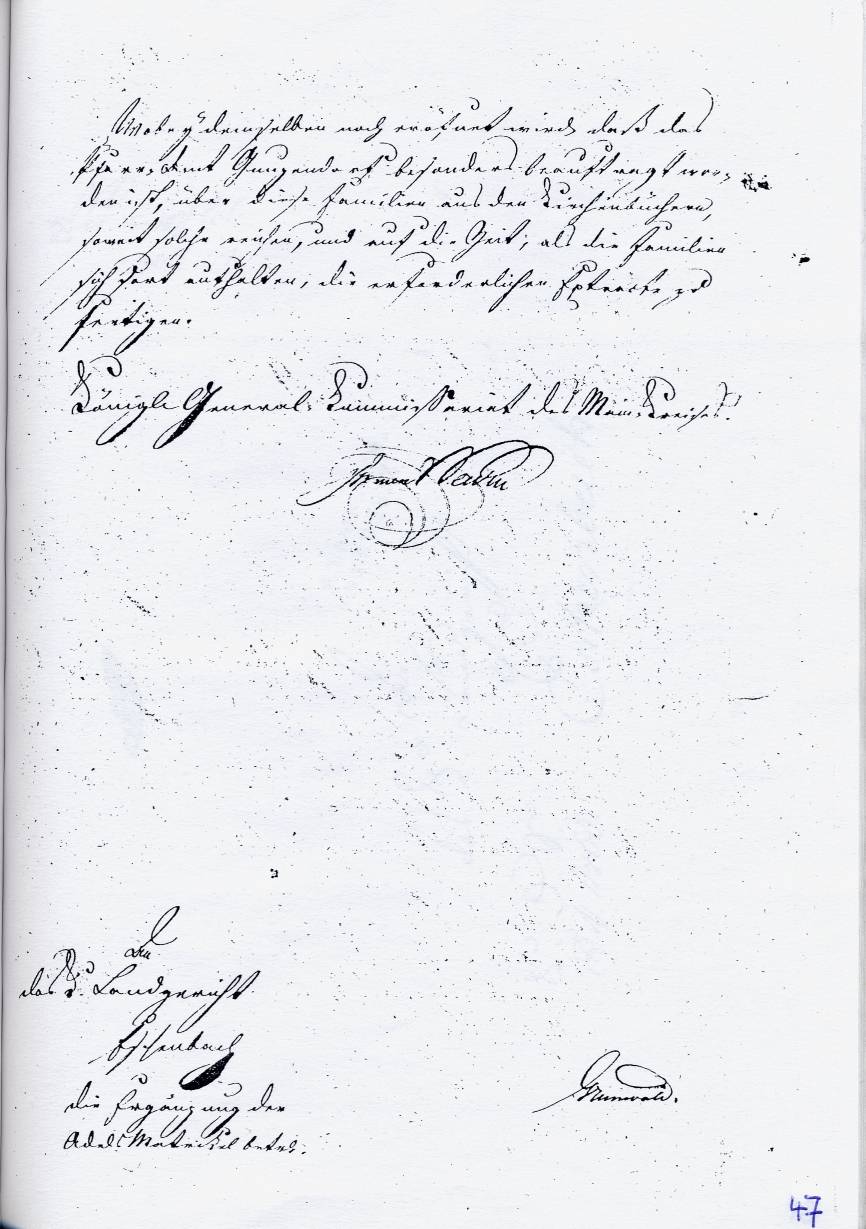 Wobey demselben noch eröfnet wird daß das
Pfarr-Amt Gungendorf besonders beauftragt wor-
den ist, über diese Familien aus den Kirchenbüchern,
soweit solche reichen, und auf die Zeit, als die Familien
sich dort aufhalten, die erforderlichen Extracte zu
fertigen.
Königl. General-Kommissariat des Main-Kreises.
An
das K. Landgericht
Eschenbach
die Ergänzung der
Adels Matrickel betr.
Grunwald.
47